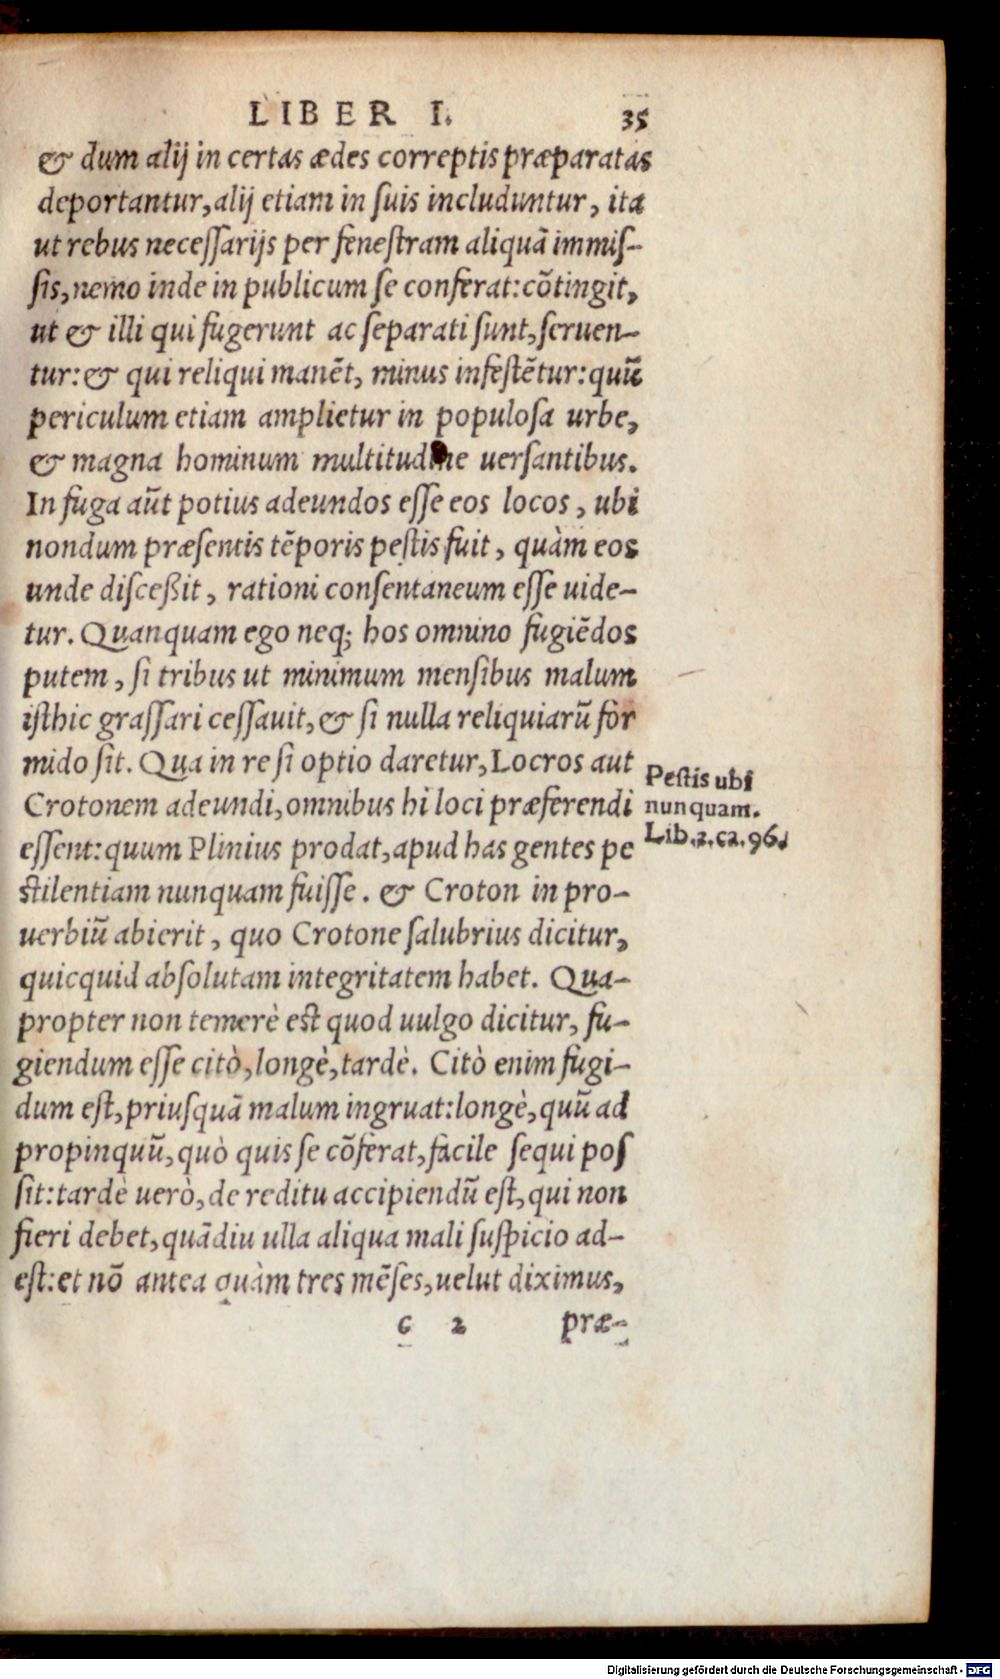 LIBER I. 35
& dum alij in certas ædes correptis præparatas
deportantur, alij etiam in ſuis includuntur, ita
ut rebus neceſſarijs per feneſtram aliquā immiſ-
ſis, nemo inde in publicum ſe conferat: cōtingit,
ut & illi qui fugerunt ac ſeparati ſunt, ſeruen-
tur: & qui reliqui manēt, minus infeſtētur: quū
periculum etiam amplietur in populoſa urbe,
& magna hominum multitudine uerſantibus.
In fuga aūt potius adeundos eſſe eos locos, ubi
nondum præſentis tēporis peſtis fuit, quàm eos
unde diſceßit, rationi conſentaneum eſſe uide-
tur. Quanquam ego neq; hos omnino fugiēdos
putem, ſi tribus ut minimum menſibus malum
iſthic graſſari ceſſauit, & ſi nulla reliquiarū for
mido ſit. Qua in re ſi optio daretur, Locros aut
Crotonem adeundi, omnibus hi loci præferendi
eſſent: quum Plinius prodat, apud has gentes pe
ſtilentiam nunquam fuiſſe. & Croton in pro-
uerbiū abierit, quo Crotone ſalubrius dicitur,
quicquid abſolutam integritatem habet. Qua-
propter non temerè eſt quod uulgo dicitur, fu-
giendum eſſe citò, longè, tardè. Citò enim fugi-
dum eſt, priuſquā malum ingruat: longè, quū ad
propinquū, quò quis ſe cōferat, facile ſequi poſ
ſit: tardè uerò, de reditu accipiendū eſt, qui non
fieri debet, quādiu ulla aliqua mali ſuſpicio ad-
eſt: et nō antea quàm tres mēſes, uelut diximus,
c 2 præ-
Peſtis ubi
nunquam.
Lib. 2. ca. 96.
Digitalisierung gefördert durch die Deutsche Forschungsgemeinschaft - DFG